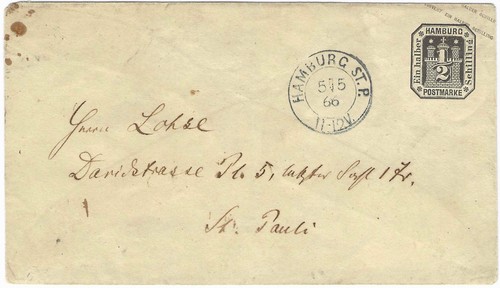 EIN HALBER SCHILLING
HAMBURG
Ein halber
1/2
Schilling
POSTMARKE
HAMBURG ST. P.
5 5
66
11-12V.
Herrn Lohse
Davidstrasse Pl. 5, letzter 1 Tr.
St. Pauli